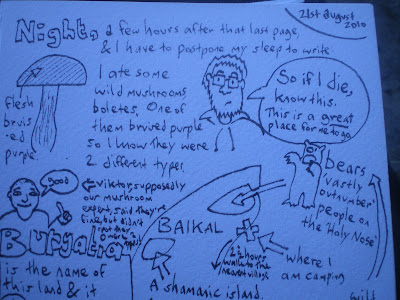 21st august
2010
Night, a few hours after that last page,
& I have to postpone my sleep to write
I ate some
wild mushrooms
boletes. One of
them bruised purple
so I know they were
2 different types.
flesh
bruis
-ed
purple.
So if I die,
know this.
This is a great
place for me to go.
bears
'vastly
outnumber'
people on
the 'Holy Nose'
Good
← Viktor, supposedly
our mushroom
expert, said they're
fine, but didn't
spot they
were 2
types
BAIKAL
2½ hours
walk to the
nearest village.
where I
am camping
Buryatian
is the name of
this land & it
A shamanic island.
wild